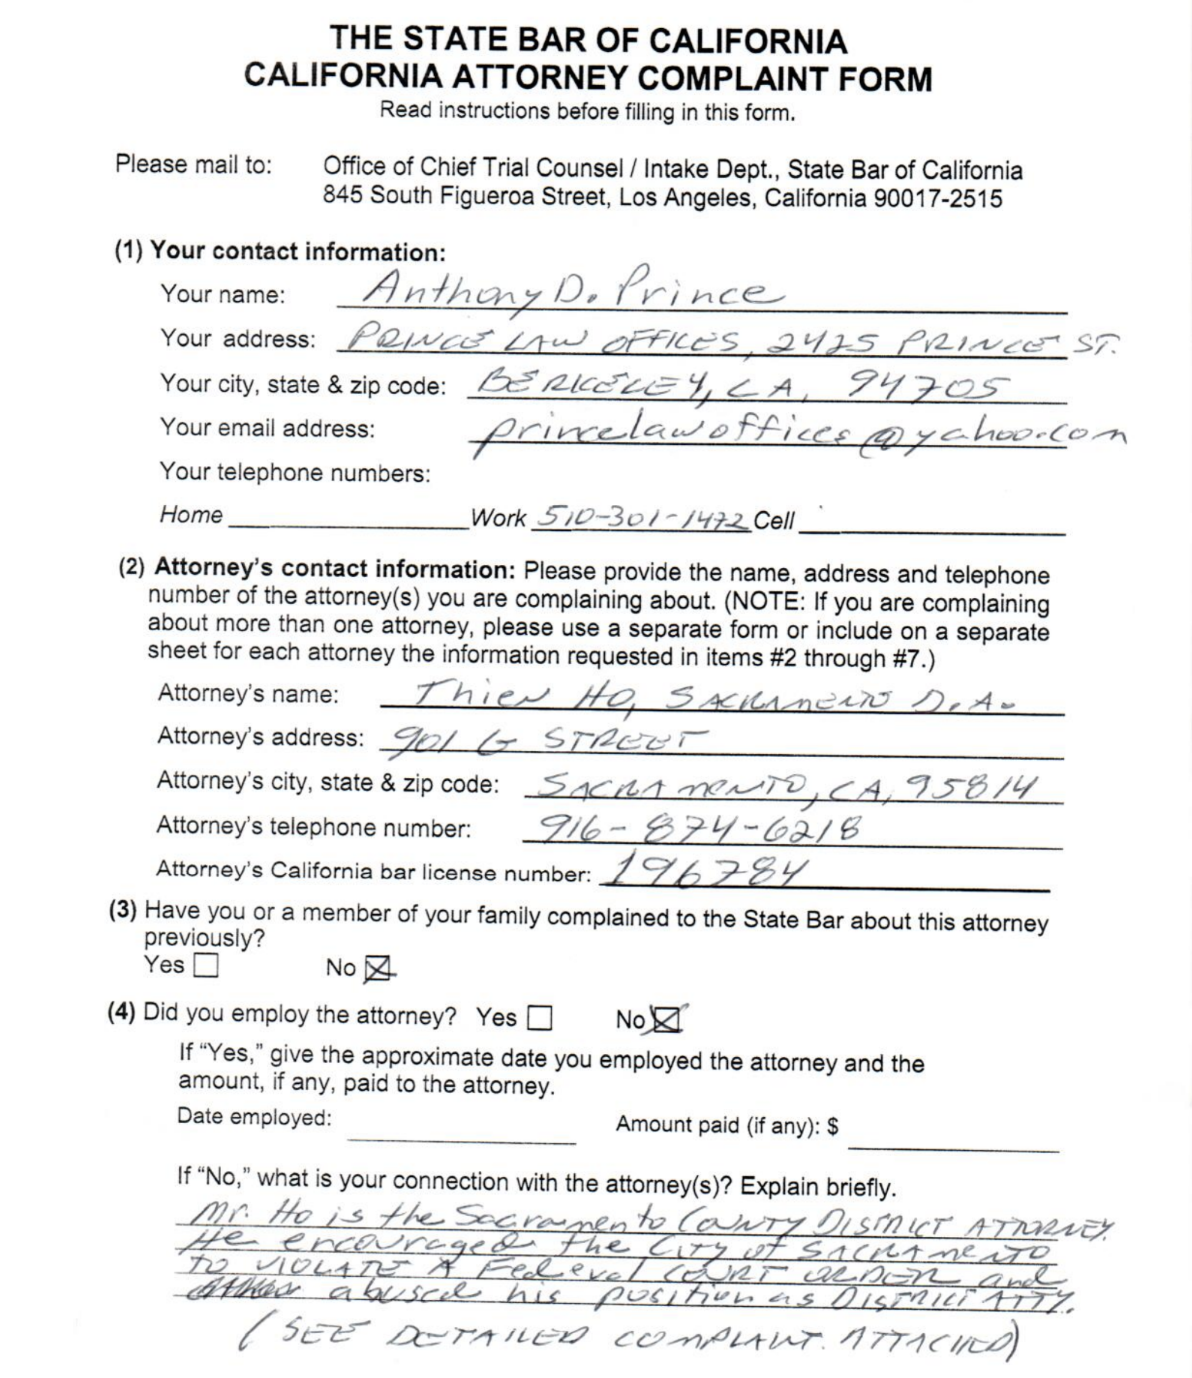 THE STATE BAR OF CALIFORNIA
CALIFORNIA ATTORNEY COMPLAINT FORM
Read instructions before filling in this form.
Please mail to: Office of Chief Trial Counsel / Intake Dept., State Bar of California
845 South Figueroa Street, Los Angeles, California 90017-2515
(1) Your contact information:
Your name: Anthony D. Prince
Your address: PRINCE LAW OFFICES, 2425 PRINCE ST.
Your city, state & zip code: BERKELEY, CA, 94705
Your email address: princelawoffices@yahoo.com
Your telephone numbers:
Home Work 510-301-1472 Cell
(2) Attorney's contact information: Please provide the name, address and telephone
number of the attorney(s) you are complaining about. (NOTE: If you are complaining
about more than one attorney, please use a separate form or include on a separate
sheet for each attorney the information requested in items #2 through #7.)
Attorney's name: Thien HO, SACRAMENTO D.A.
Attorney's address: 901 G STREET
Attorney's city, state & zip code: SACRAMENTO, CA, 95814
Attorney's telephone number: 916-874-6218
Attorney's California bar license number: 196784
(3) Have you or a member of your family complained to the State Bar about this attorney
previously?
Yes ☐ No ☒
(4) Did you employ the attorney? Yes ☐ No ☒
If "Yes," give the approximate date you employed the attorney and the
amount, if any, paid to the attorney.
Date employed: Amount paid (if any): $
If "No," what is your connection with the attorney(s)? Explain briefly.
Mr. Ho is the Sacramento COUNTY DISTRICT ATTORNEY.
He encouraged the CITY of SACRAMENTO
to VIOLATE A Federal COURT ORDER and
abused his position as DISTRICT ATTY.
(SEE DETAILED COMPLAINT. ATTACHED)